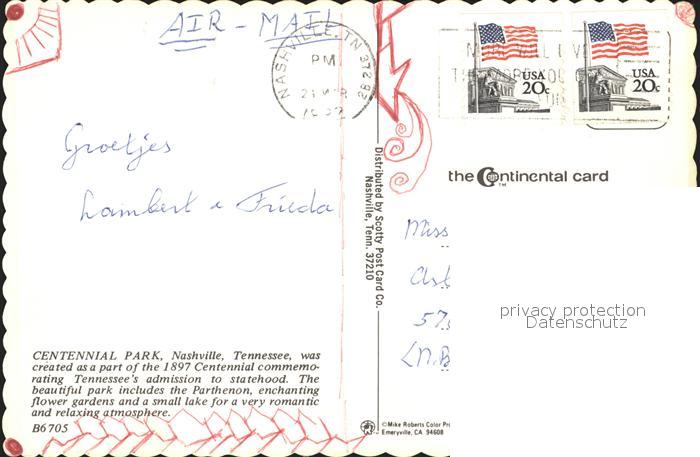 AIR-MAIL
NASHVILLE, TN 372 82
PM
USA
20c
USA
20c
the Continental card
TM
Groetjes
Lambert e Frieda
Distributed by Scotty Post Card Co.
Nashville, Tenn. 37210
Miss
57
privacy protection
Datenschutz
CENTENNIAL PARK, Nashville, Tennessee, was
created as a part of the 1897 Centennial commemo-
rating Tennessee's admission to statehood. The
beautiful park includes the Parthenon, enchanting
flower gardens and a small lake for a very romantic
and relaxing atmosphere.
B6705
©Mike Roberts Color Pri
Emeryville, CA 94608